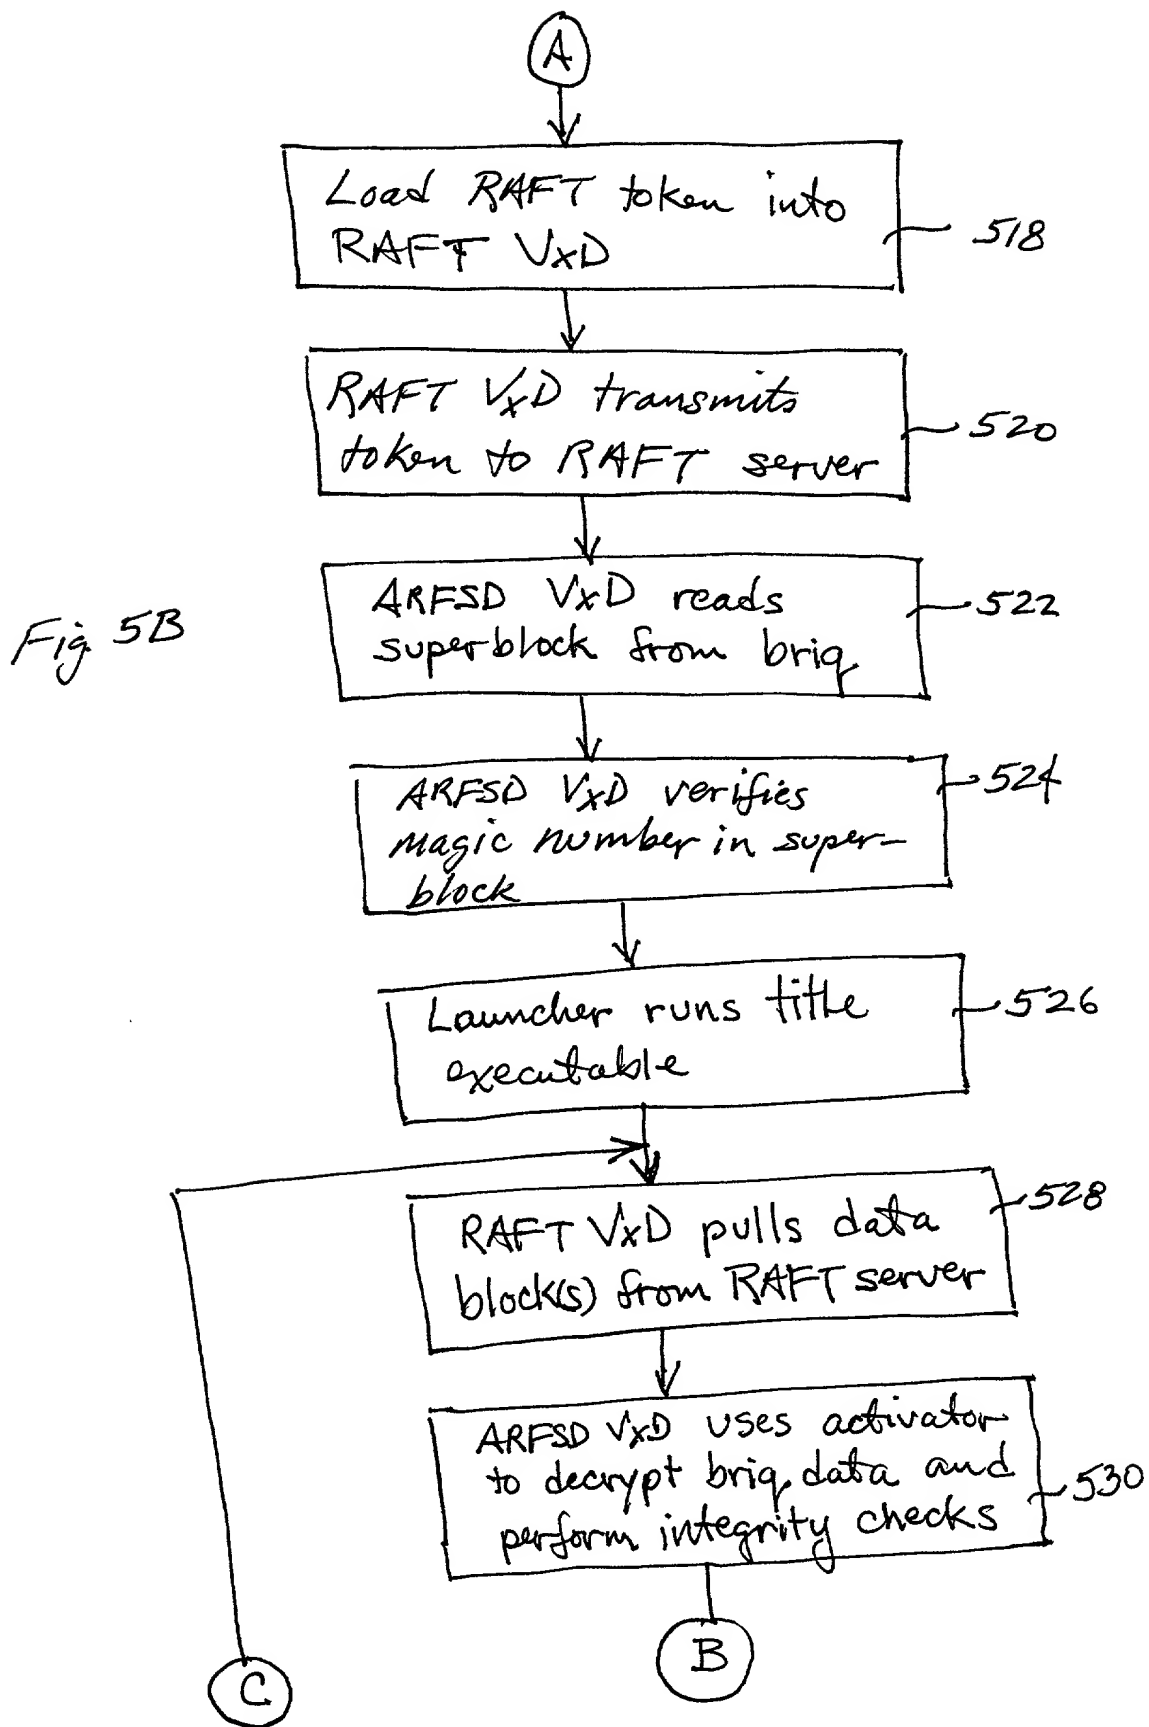 A
Load RAFT token into
RAFT VxD
518
RAFT VxD transmits
token to RAFT server
520
ARFSD VxD reads
superblock from briq
522
Fig 5B
ARFSD VxD verifies
magic number in super-
block
524
Launcher runs title
executable
526
RAFT VxD pulls data
block(s) from RAFT server
528
ARFSD VxD uses activator
to decrypt briq data and
perform integrity checks
530
B
C